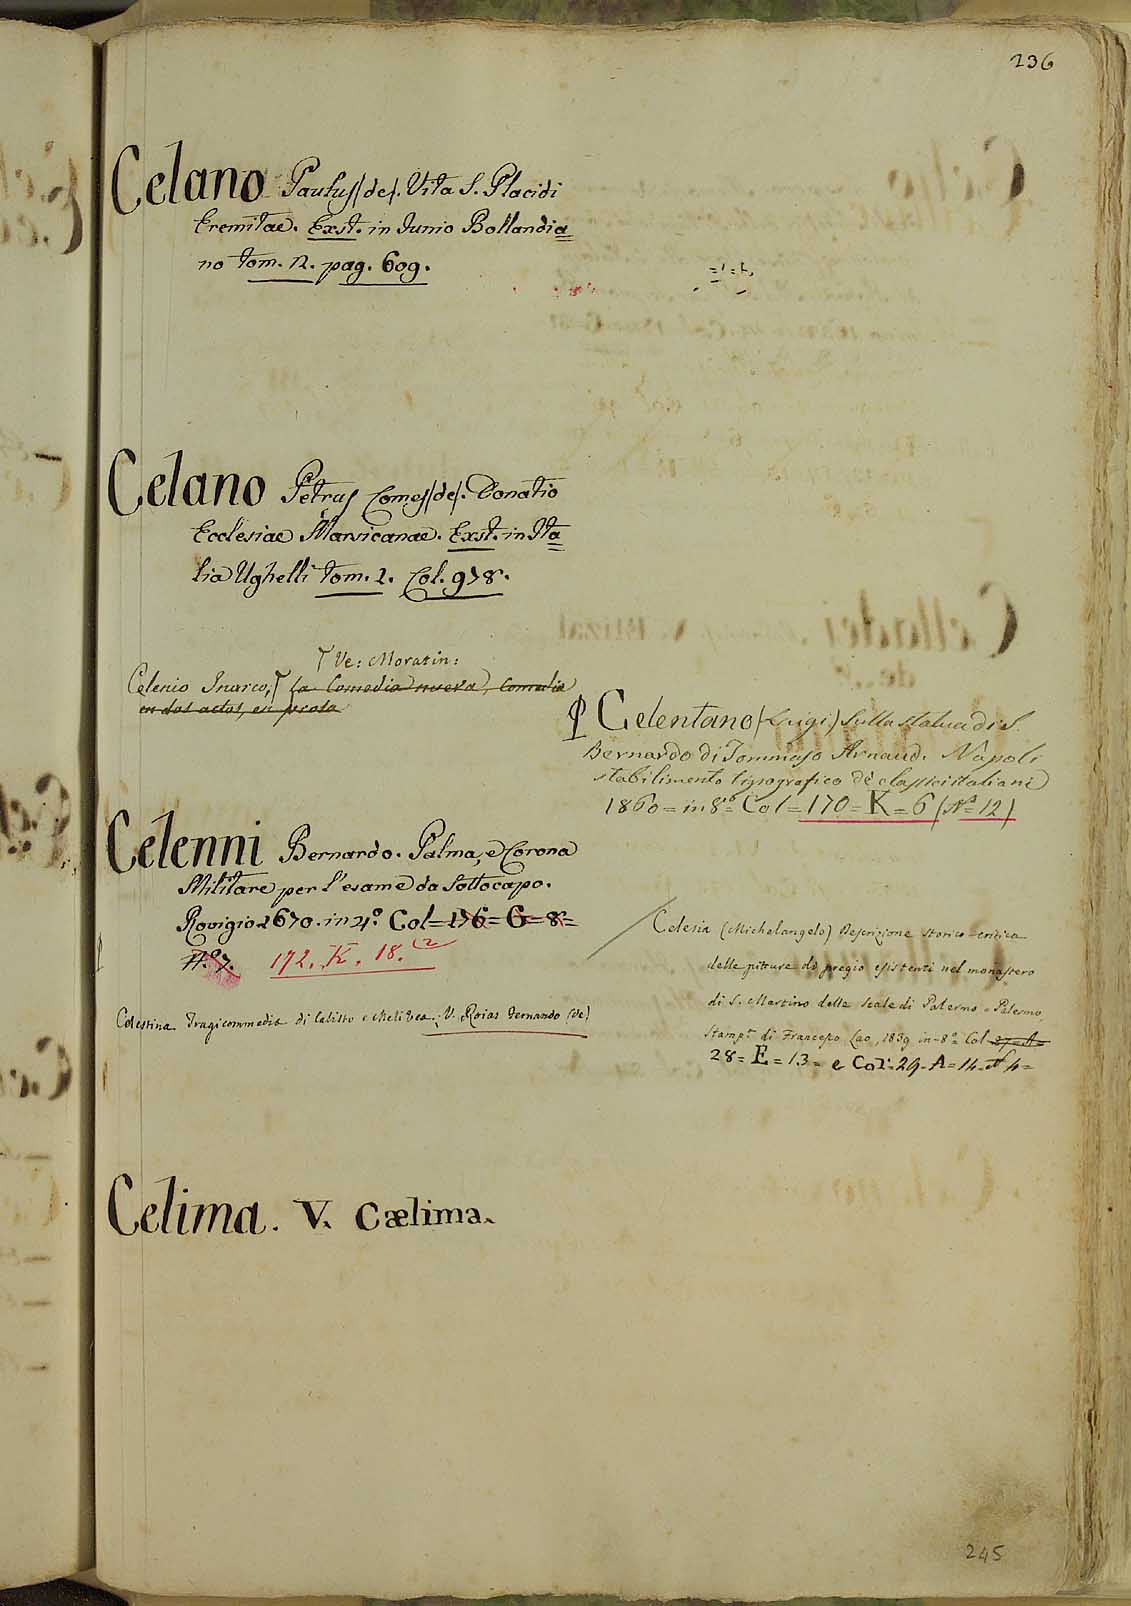 236
Celano Paulus (de). Vita S. Placidi
Eremitae. Exst. in Junio Bollandia=
no tom. 2. pag. 609.
Celano Petrus Comes (de). Donatio
Ecclesiae Marsicanae. Exst. in Ita=
lia Ughelli tom. 1. Col. 978.
Ve: Moratin:
Celenio Inarco, La Comedia nueva, Comedia
en dos actos, en prosa
Celentano (Luigi) Sulla statua di S.
Bernardo di Tommaso Arnaud. Napoli
stabilimento tipografico de' classici italiani
1860 = in 8º = Col = 170 = K = 6 (Nº = 12)
Celenni Bernardo. Palma, e Corona
Militare per l'esame da Sottocapo.
Rovigio 1670. in 4º. Col = 176 = G = 8 =
Nº 7. 172. K. 18. (2
Celesia (Michelangelo) Descrizione storico-critica
delle pitture di pregio esistenti nel monastero
di S. Martino delle Scale di Palermo = Palermo,
Stamp. di Francesco Lao, 1839 in-8º Col
28 = E = 13 = e Col: 29 = A = 14 = Nº 4 =
Celestina Tragicommedia di Calisto e Melibea; V. Roias Fernando (de)
Celima. V. Cælima.
245